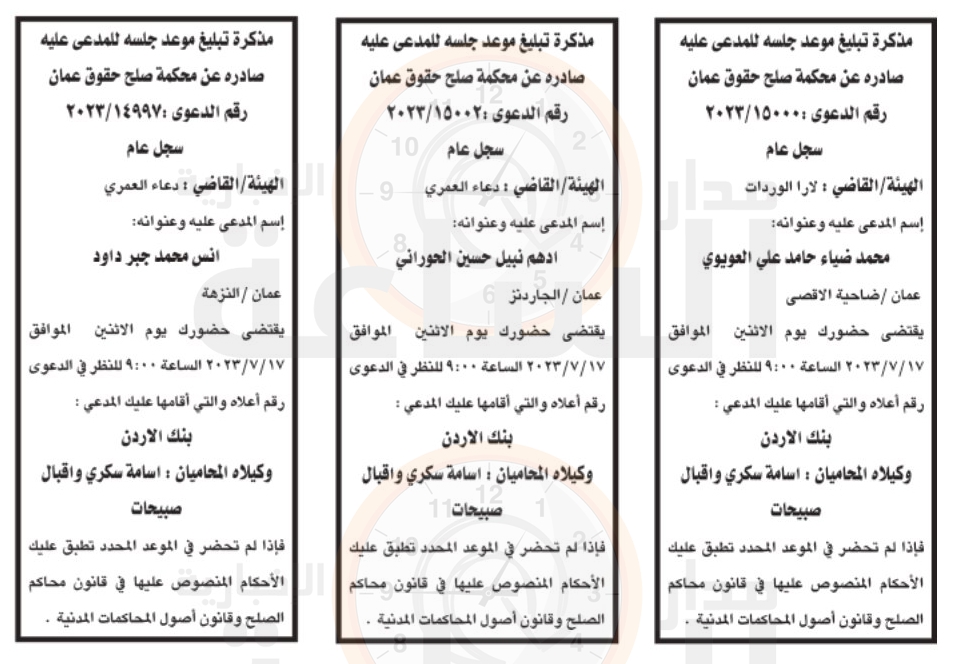 مذكرة تبليغ موعد جلسه للمدعى عليه
صادره عن محكمة صلح حقوق عمان
رقم الدعوى :٢٠٢٣/١٥٠٠٠
سجل عام
الهيئة/القاضي : لارا الوردات
إسم المدعى عليه وعنوانه:
محمد ضياء حامد علي العويوي
عمان /ضاحية الاقصى
يقتضى حضورك يوم الاثنين الموافق
٢٠٢٣/٧/١٧ الساعة ٩:٠٠ للنظر في الدعوى
رقم أعلاه والتي أقامها عليك المدعي :
بنك الاردن
وكيلاه المحاميان : اسامة سكري واقبال
صبيحات
فإذا لم تحضر في الموعد المحدد تطبق عليك
الأحكام المنصوص عليها في قانون محاكم
الصلح وقانون أصول المحاكمات المدنية .
مذكرة تبليغ موعد جلسه للمدعى عليه
صادره عن محكمة صلح حقوق عمان
رقم الدعوى :٢٠٢٣/١٥٠٠٢
سجل عام
الهيئة/القاضي : دعاء العمري
إسم المدعى عليه وعنوانه:
ادهم نبيل حسين الحوراني
عمان /الجاردنز
يقتضى حضورك يوم الاثنين الموافق
٢٠٢٣/٧/١٧ الساعة ٩:٠٠ للنظر في الدعوى
رقم أعلاه والتي أقامها عليك المدعي :
بنك الاردن
وكيلاه المحاميان : اسامة سكري واقبال
صبيحات
فإذا لم تحضر في الموعد المحدد تطبق عليك
الأحكام المنصوص عليها في قانون محاكم
الصلح وقانون أصول المحاكمات المدنية .
مذكرة تبليغ موعد جلسه للمدعى عليه
صادره عن محكمة صلح حقوق عمان
رقم الدعوى :٢٠٢٣/١٤٩٩٧
سجل عام
الهيئة/القاضي : دعاء العمري
إسم المدعى عليه وعنوانه:
انس محمد جبر داود
عمان /النزهة
يقتضى حضورك يوم الاثنين الموافق
٢٠٢٣/٧/١٧ الساعة ٩:٠٠ للنظر في الدعوى
رقم أعلاه والتي أقامها عليك المدعي :
بنك الاردن
وكيلاه المحاميان : اسامة سكري واقبال
صبيحات
فإذا لم تحضر في الموعد المحدد تطبق عليك
الأحكام المنصوص عليها في قانون محاكم
الصلح وقانون أصول المحاكمات المدنية .
مدار
الساعة
الإخبارية